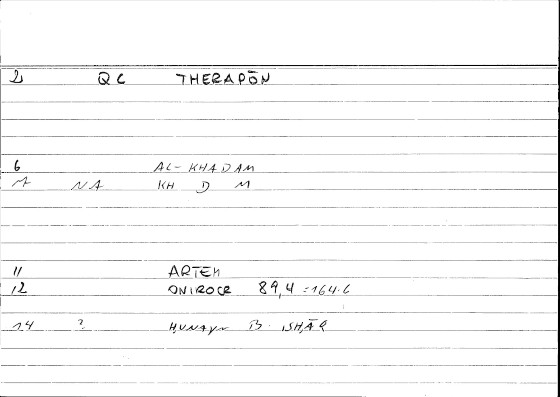 2 QC THERAPŌN
6 AL-KHADAM
NA KH D M
11 ARTEM
12 ONIROCR 89,4 = 164.6
14 ? ḤUNAYN B. ISḤĀQ